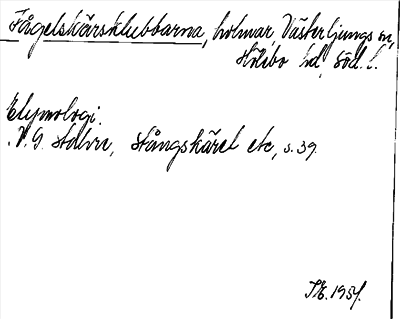 Fågelskärsklubbarna, holmar, Västerljungs sn,
Hölebo hd, Söd. l.
Etymologi.
V. G. Stångskäret etc, s. 39.
1954.